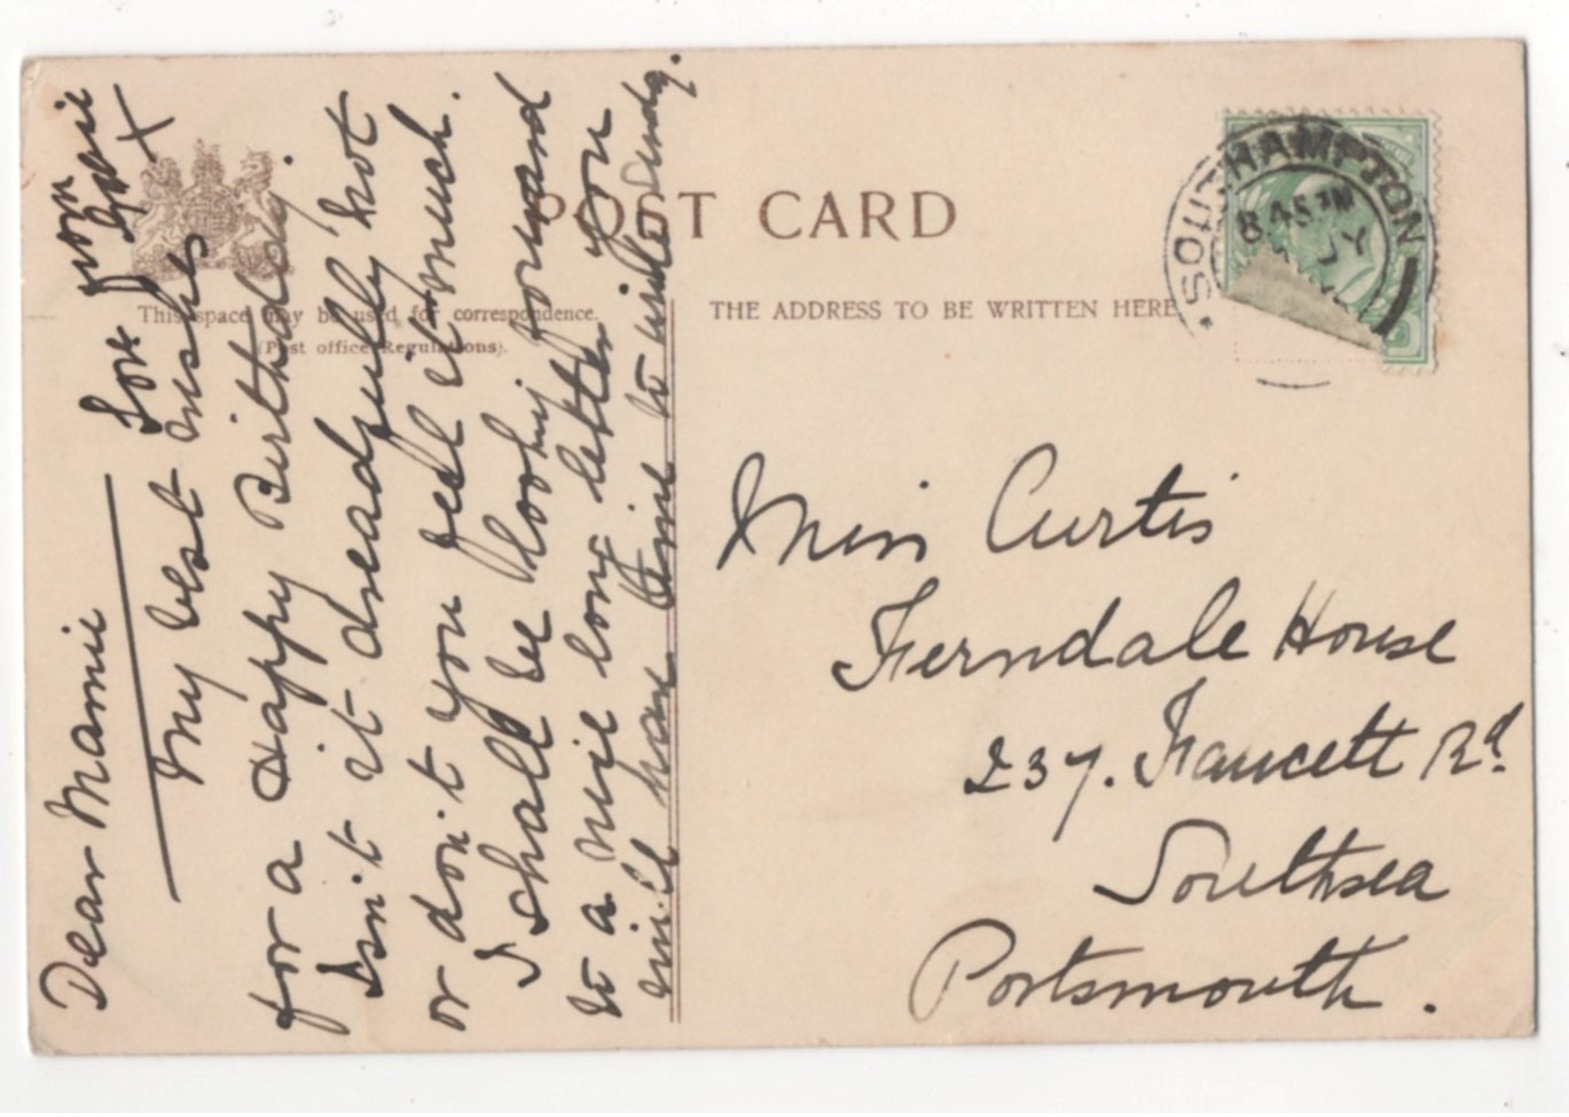 POST CARD
This space may be used for correspondence.
(Post office Regulations).
THE ADDRESS TO BE WRITTEN HERE
SOUTHAMPTON
8.45 PM
JY
Dear Mamie
My best wishes
for a Happy Birthday.
Isn't it dreadfully hot
or don't you feel it much.
I shall be looking forward
to a nice long letter you
will have time to write Sunday.
Love from
X
Miss Curtis
Ferndale House
237. Fawcett Rd.
Southsea
Portsmouth.